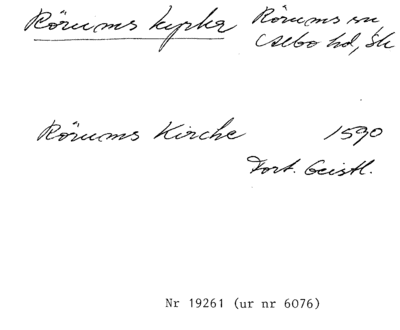 Rörums kyrka Rörums sn,
Albo hd, Sk
Rörums Kirche 1590
Fort. Geistl.
Nr 19261 (ur nr 6076)